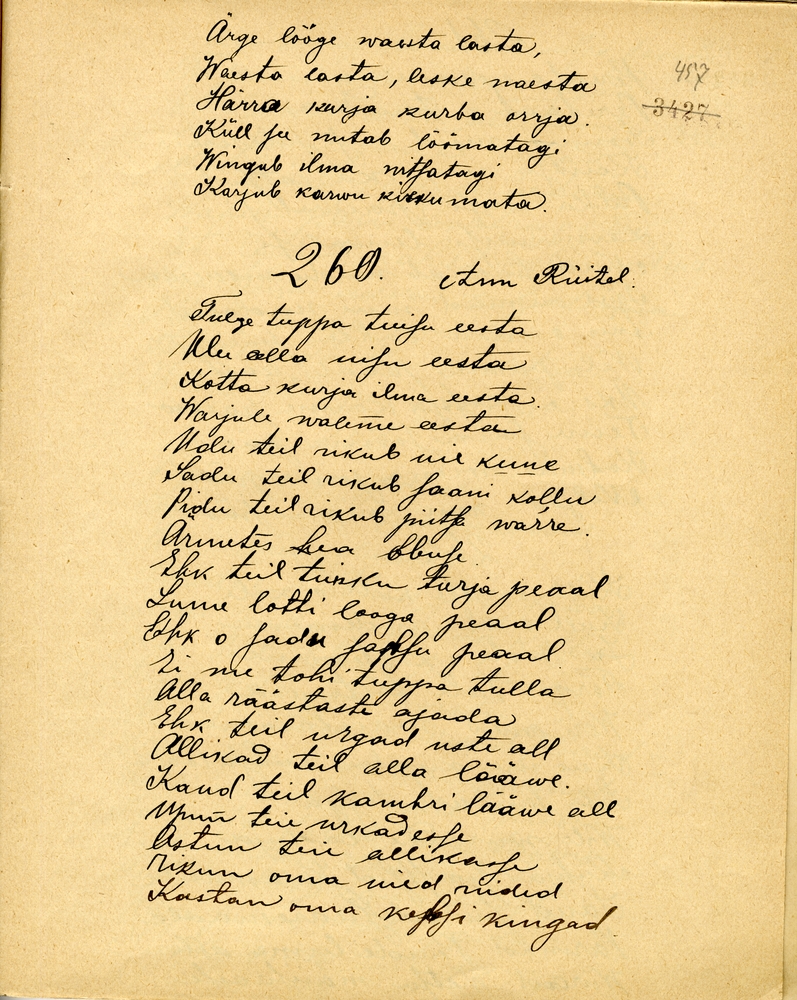 Ärge lööge waesta lasta,
Waesta lasta, leske naesta
457
Härra kurja kurba orrja.
3427.
Küll ju nutab löömatagi
Wingub ilma nitsatagi
Karjub karwu kiskumata.
260. Ann Rüütel.
Tulge tuppa tuisu eesta
Ulu alla uisu eesta
Kotta kurja ilma eesta.
Warjule waleme eesta
Udu teil rikub uie kuue
Sadu teil rikub saani kollu
Pidu teil rikub piitsa warre.
Ärmetes hea hbuse
Ehk teil tuisku turja peaal
Lume lotti looga peaal
Ehk o sadu peaal
Ei me tohi tuppa tulla
Alla räästaste ajada
Ehk teil urgad uste all
Allikad teil alla lääwe.
Kaud teil kambri lääwe all
teie urkadesse
Astun teie allikasse
Rikun oma uied riided
Kastan oma kingad.